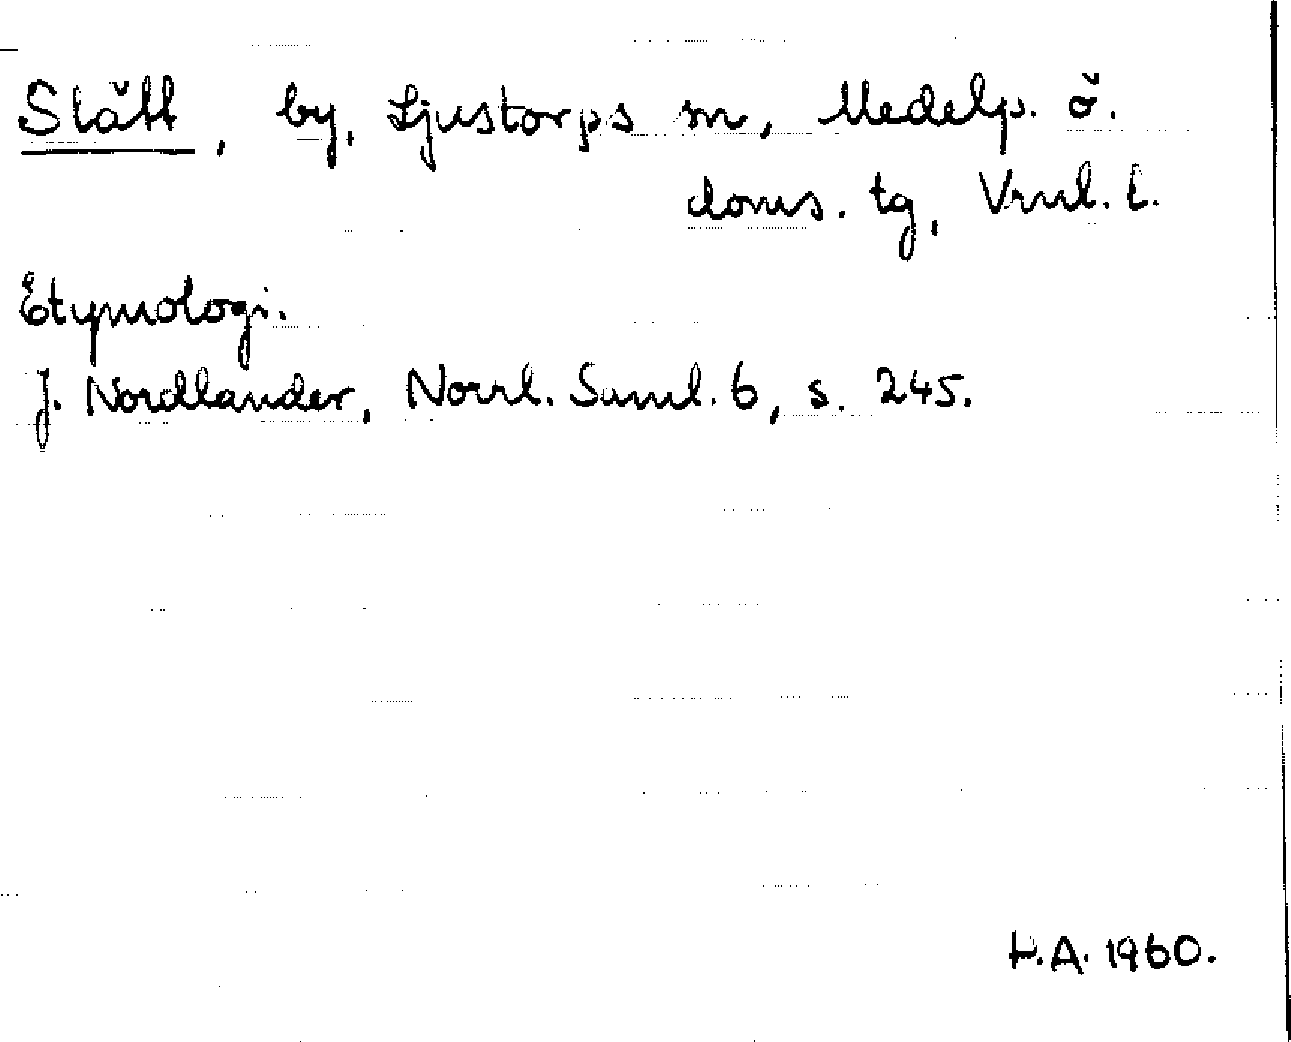 Slätt, by, Ljustorps sn, Medelp. ö.
doms. tg, Vrnl. l.
Etymologi.
J. Nordlander, Norrl. Saml. 6, s. 245.
H.A. 1960.